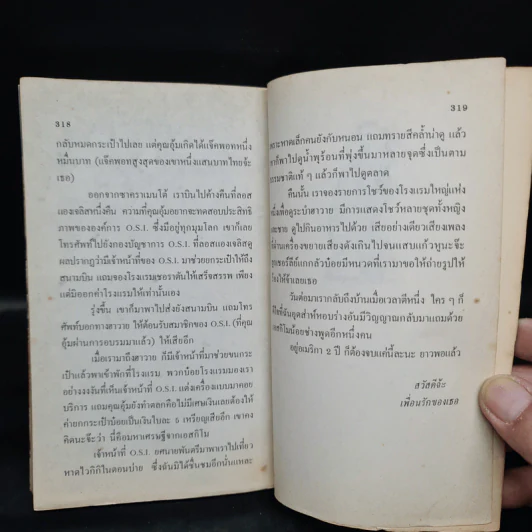 318
กลับหมดกระเป๋าไปเลย แต่คุณอุ้มเกิดได้แจ๊คพอทหนึ่ง
หมื่นบาท (แจ๊คพอทสูงสุดของเขาหนึ่งแสนบาทไทยจ้ะ
เธอ)
ออกจากซาคราเมนโต้ เราบินไปค้างคืนที่ลอส
แองเจลิสหนึ่งคืน ความที่คุณอุ้มอยากจะทดสอบประสิทธิ
ภาพขององค์การ O.S.I. ซึ่งมีอยู่ทุกมุมโลก เขาก็เลย
โทรศัพท์ไปยังกองบัญชาการ O.S.I. ที่ลอสแองเจลิสดู
ผลปรากฏว่ามีเจ้าหน้าที่ของ O.S.I. มาช่วยยกกระเป๋าให้ถึง
สนามบิน แถมจองโรงแรมเชอราตันให้เสร็จสรรพ เพียง
แต่มิออกค่าโรงแรมให้เท่านั้นเอง
รุ่งขึ้น เขาก็มาพาไปส่งยังสนามบิน แถมโทร
ศัพท์บอกทางฮาวาย ให้ต้อนรับสมาชิกของ O.S.I. (ที่คุณ
อุ้มผ่านการอบรมมาแล้ว) ให้เสียอีก
เมื่อเรามาถึงฮาวาย ก็มีเจ้าหน้าที่มาช่วยขนกระ
เป๋าแล้วพาเข้าพักที่โรงแรม พวกน้อยโรงแรมมองเรา
อย่างงงงันที่เห็นเจ้าหน้าที่ O.S.I. แต่งเครื่องแบบมาคอย
บริการ แถมคุณอุ้มยังทำตลกคือไม่มีเศษเงินเลยต้องให้
ค่ายกกระเป๋าน้อยเป็นเงินใบละ 5 เหรียญเสียอีก เขาคง
คิดนะจ๊ะว่า นี่คือมหาเศรษฐีจากเอสกิโม
เจ้าหน้าที่ O.S.I. ยศนายพันตรีมาพาเราไปเที่ยว
หาดไวกิกิในตอนบ่าย ซึ่งฉันมิได้ชื่นชมอีกนั่นแหละ
319
เพราะหาดเล็กคนยังกับหนอน แถมทรายสีคล้ำน่าดู แล้ว
เขาก็พาไปดูน้ำพุร้อนที่พุ่งขึ้นมาหลายจุดซึ่งเป็นตาม
ธรรมชาติแท้ ๆ แล้วก็พาไปดูตลาด
คืนนั้น เราจองรายการโชว์ของโรงแรมใหญ่แห่ง
หนึ่งเพื่อดูระบำฮาวาย มีการแสดงโชว์หลายชุดทั้งหญิง
ดูไปกินอาหารไปด้วย เสียอย่างเดียวเสียงเพลง
ที่ผ่านเครื่องขยายเสียงดังเกินไปจนแสบแก้วหูนะจ๊ะ
มีหนวดที่เรามาขอให้ถ่ายรูปให้
วันต่อมาเรากลับถึงบ้านเมื่อเวลาตีหนึ่ง ใคร ๆ ก็
มีวิญญาณกลับมาแถมด้วย
อยู่อเมริกา 2 ปี ก็ต้องจบแค่นี้ละนะ ยาวพอแล้ว
สวัสดีจ้ะ
เพื่อนรักของเธอ